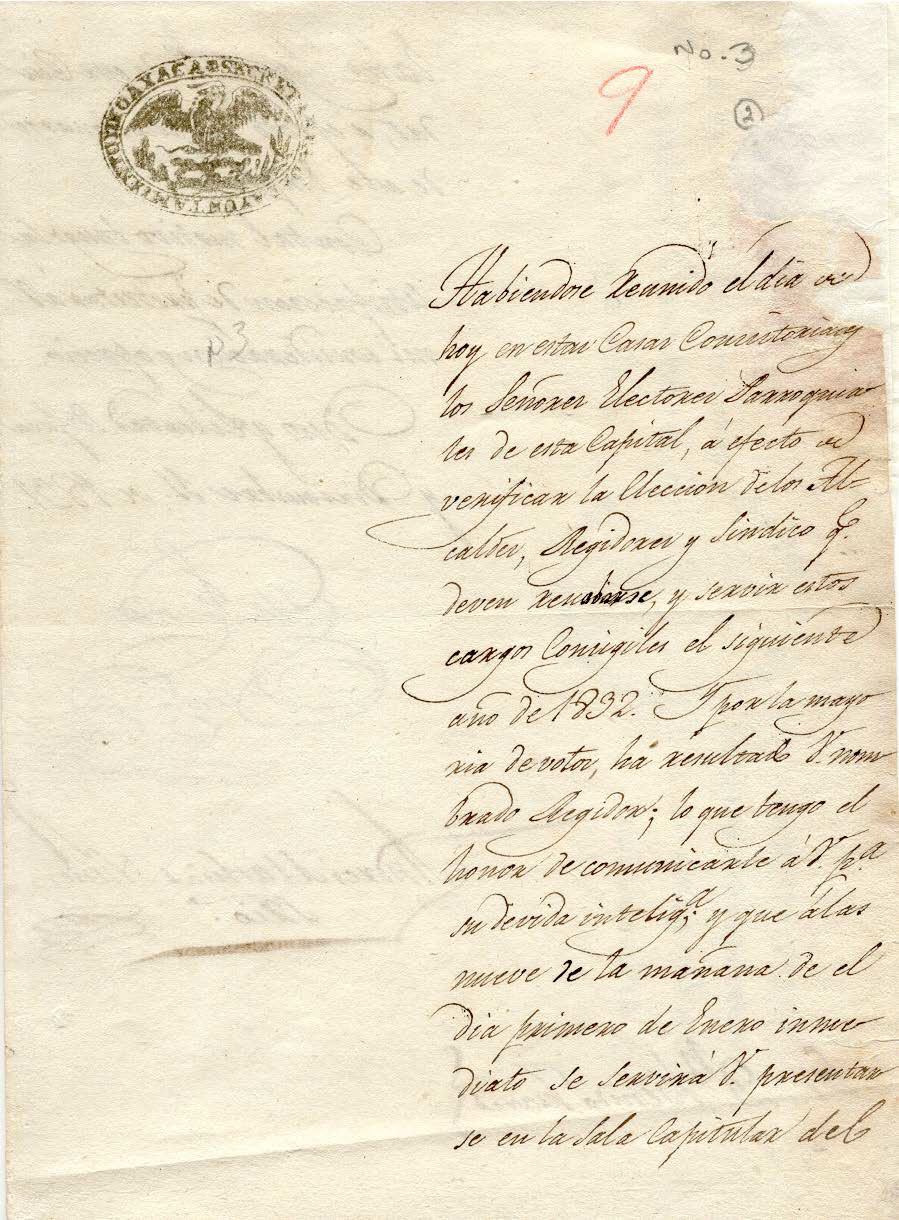 No. 3
9
2
SECRETARIA DEL AYUNTAMIENTO DE OAXACA
p3
Habiendose reunido el dia de
hoy en estas Casas Consistoriales
los Señores Electores Parroquia
les de esta Capital, á efecto de
verificar la Eleccion de los Al-
caldes, Regidores y Sindico q.e
deven renobarse, y servir estos
cargos Consegiles el siguiente
año de 1832. Y por la mayo
ria de votos, ha resultado V. nom
brado Regidor; lo que tengo el
honor de comunicarle á V. p.a
su devida intelig.a; y que á las
nueve de la mañana de el
dia primero de Enero inme
diato se servirá V. presentar
se en la Sala Capitular del